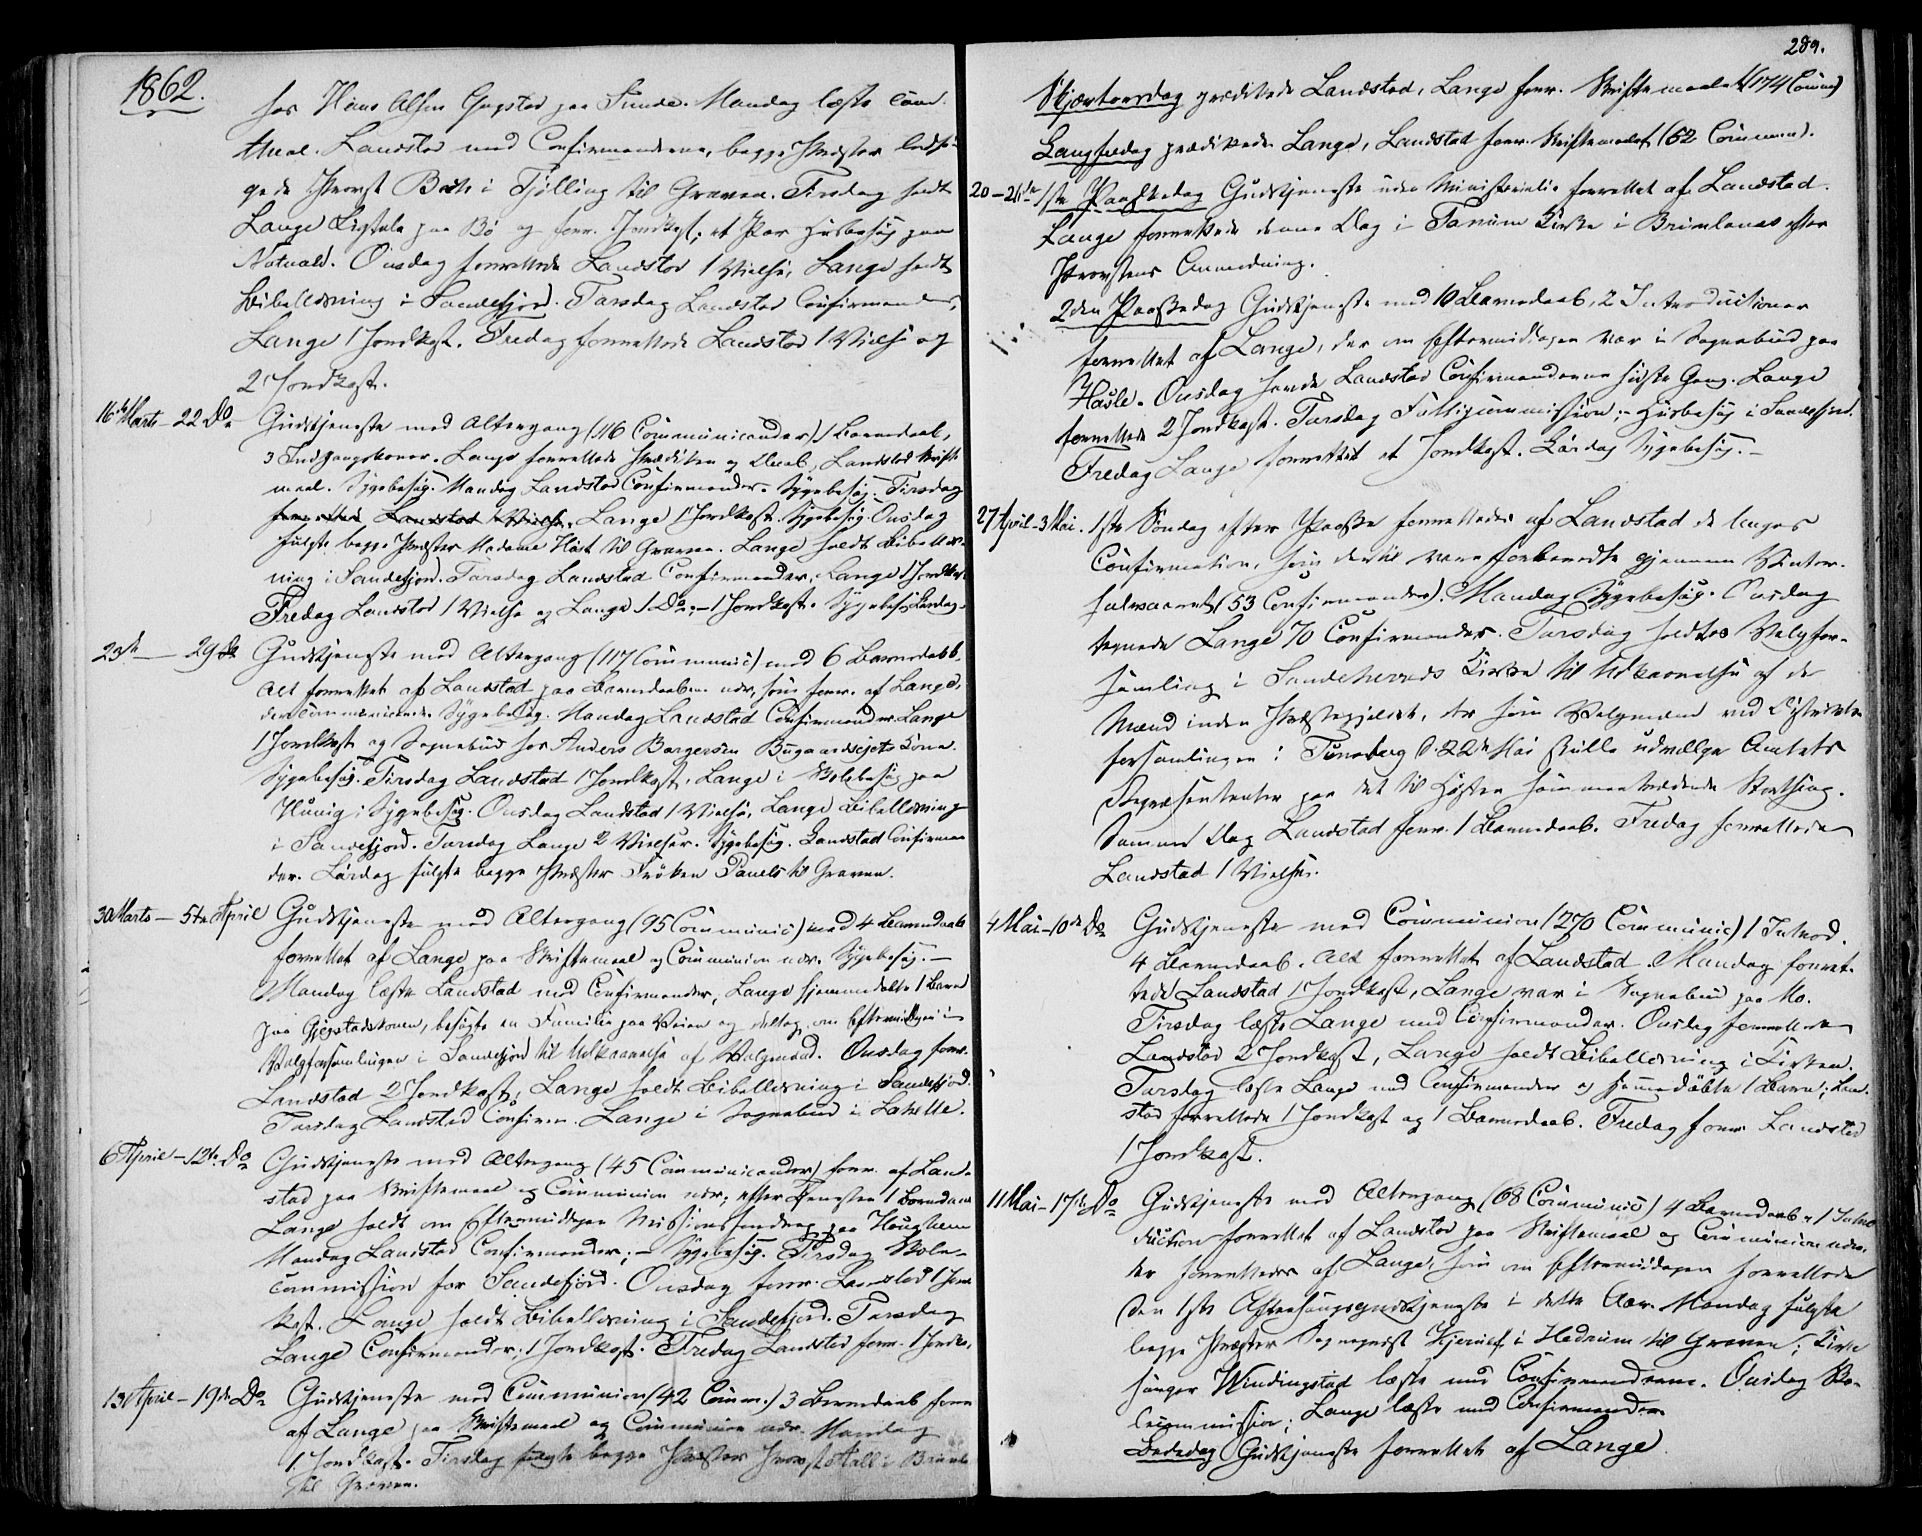 1862.
hos Hans Olsen Gogstad paa Sunde. Mandag læste Cand.
theol. Landstad med Confirmanderne, begge Præster ledsa-
gede Provst Bech i Tjølling til Graven. Tirsdag holdt
Lange Ligtale paa Bø og forr. Jordkast; et Par Husbesøg paa
Natvald. Onsdag forrettede Landstad 1 Vielse, Lange holdt
Bibellæsning i Sandefjord. Torsdag Landstad Confirmander,
Lange 1 Jordkast. Fredag forrettede Landstad 1 Vielse og
2 Jordkast.
16de Marts – 22 Do Gudstjeneste med Altergang (116 Communicander) 1 Barnedaab,
3 Indgangskoner. Lange forrettede Prædiken og Daab, Landstad Skrifte-
maal. Sygebesøg. Mandag Landstad Confirmander. Sygebesøg. Tirsdag
forrettede Landstad 1 Vielse. Lange 1 Jordkast. Sygebesøg. Onsdag
fulgte begge Præster Madame Høst til Graven. Lange holdt Bibellæs-
ning i Sandefjord. Torsdag Landstad Confirmander, Lange 1 Jordkast
Fredag Landstad 1 Vielse og Lange 1 Do; – 1 Jordkast. Sygebesøg Lørdag.
23de – 29de Gudstjeneste med Altergang (117 Communic) med 6 Barnedaab,
Alt forrettet af Landstad paa Barnedaaben nær, som forr. af Lange,
der communicerede. Sygebesøg. Mandag Landstad Confirmander. Lange
1 Jordkast og Sognebud hos Anders Borgersen Bugaardsejets Kone.
Sygebesøg. Tirsdag Landstad 1 Jordkast, Lange i Skolebesøg paa
Hunig; Sygebesøg. Onsdag Landstad 1 Vielse, Lange Bibellæsning
i Sandefjord. Torsdag Lange 2 Vielser. Sygebesøg. Landstad Confirman
der. Lørdag fulgte begge Præster Frøken Panels til Graven.
30 Marts – 5te April Gudstjeneste med Altergang (95 Communic) med 4 Barnedaab
forrettet af Lange paa Skriftemaal og Communion nær. Sygebesøg. –
Mandag læste Landstad med Confirmander, Lange hjemmedøbte 1 Barn
paa Gjegstadskoven, besøgte en Familie paa Veien og deltog om Eftermiddagen i
Valgforsamlingen i Sandefjord til Udkaarelse af Valgmænd. Onsdag forr.
Landstad 2 Jordkast, Lange holdt Bibellæsning i Sandefjord.
Torsdag Landstad Confirm. Lange i Sognebud i Lahelle.
6 April – 12te Do Gudstjeneste med Altergang (45 Communicander) forr. af Land-
stad paa Skriftemaal og Communion nær; efter Tjenesten 1 Barnedaab
Lange holdt om Eftermiddagen Missionsforedrag paa Haughem
Mandag Landstad Confirmander; – Sygebesøg. Tirsdag Skole-
commission for Sandefjord. Onsdag forr. Landstad 1 Jord
kast. Lange holdt Bibellæsning i Sandefjord. Torsdag
Lange Confirmander; 1 Jordkast. Fredag Landstad forr. 1 Jordk.
13 April – 19de Do Gudstjeneste med Communion (42 Comm.) 3 Barnedaab forr
af Lange paa Skriftemaal og Communion nær. Mandag
1 Jordkast. Tirsdag fulgte begge Præster Provst Hall i Brunla
til Graven.
289.
Skjærtorsdag prædikede Landstad, Lange forr. Skriftemaalet (174 Comm)
Langfredag prædikede Lange, Landstad forr. Skriftemaalet (52 Commun).
20–26de 1ste Paaskedag Gudstjeneste uden Ministerielle forrettet af Landstad.
Lange forrettede denne Dag i Tanum Kirke i Brunlanæs efter
Provstens Anmodning.
2den Paaskedag Gudstjeneste med 10 Barnedaab, 2 Introductioner
forrettet af Lange, der om Eftermiddagen var i Sognebud paa
Hasle. Onsdag havde Landstad Confirmanderne sidste Gang. Lange
forrettede 2 Jordkast. Torsdag Fattigcommission; – Husbesøg i Sandefjord.
Fredag Lange forrettet et Jordkast. Lørdag Sygebesøg. –
27 April – 3 Mai. 1ste Søndag efter Paaske forrettedes af Landstad de Unges
Confirmation, som dertil vare forberedte gjennem Vinter-
halvaaret (53 Confirmander). Mandag Sygebesøg. Onsdag
tegnede Lange 70 Confirmander. Torsdag holdtes Valgfor-
samling i Sandeherreds Kirke til Udkaarelse af de
Mænd inden Præstegjeldet, der som Valgmænd ved Districts
forsamlingen i Tønsberg d. 22de Mai skulle udvælge Amtets
Repræsentanter paa det til Høsten sammentrædende Storthing.
Samme Dag Landstad forr. 1 Barnedaab. Fredag forrettede
Landstad 1 Vielse.
4 Mai – 10de Do Gudstjeneste med Communion (270 Communic) 1 Introd.
4 Barnedaab. Alt forrettet af Landstad. Mandag forret-
tede Landstad 1 Jordkast, Lange var i Sognebud paa Mo.
Tirsdag læste Lange med Confirmander. Onsdag forrettede
Landstad 2 Jordkast, Lange holdt Bibellæsning i Kirken.
Torsdag læste Lange med Confirmander og hjemmedøbte 1 Barn; Land-
stad forrettede 1 Jordkast og 1 Barnedaab. Fredag forr. Landstad
1 Jordkast.
11 Mai – 17de Do Gudstjeneste med Altergang (68 Communic) 4 Barnedaab, 1 Intro
duction forrettet af Landstad paa Skriftemaal og Communion nær,
der forrettedes af Lange, som om Eftermiddagen forrettede
den 1ste Aftensangsgudstjeneste i dette Aar. Mandag fulgte
begge Præster Sognepræst Kjerulf i Hedrum til Graven; Kirke
sanger Windingstad læste med Confirmanderne. Onsdag Sko-
lecommission; Lange læste med Confirmander
Bededag Gudstjeneste forrettet af Lange.